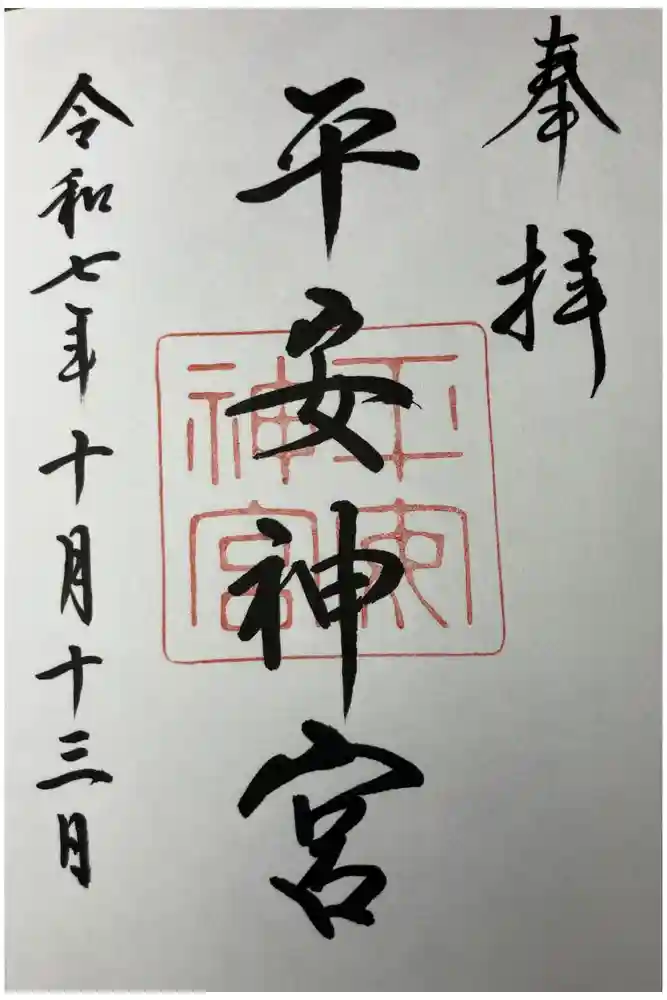 奉拝
平安神宮
平安神宮
令和七年十月十三日